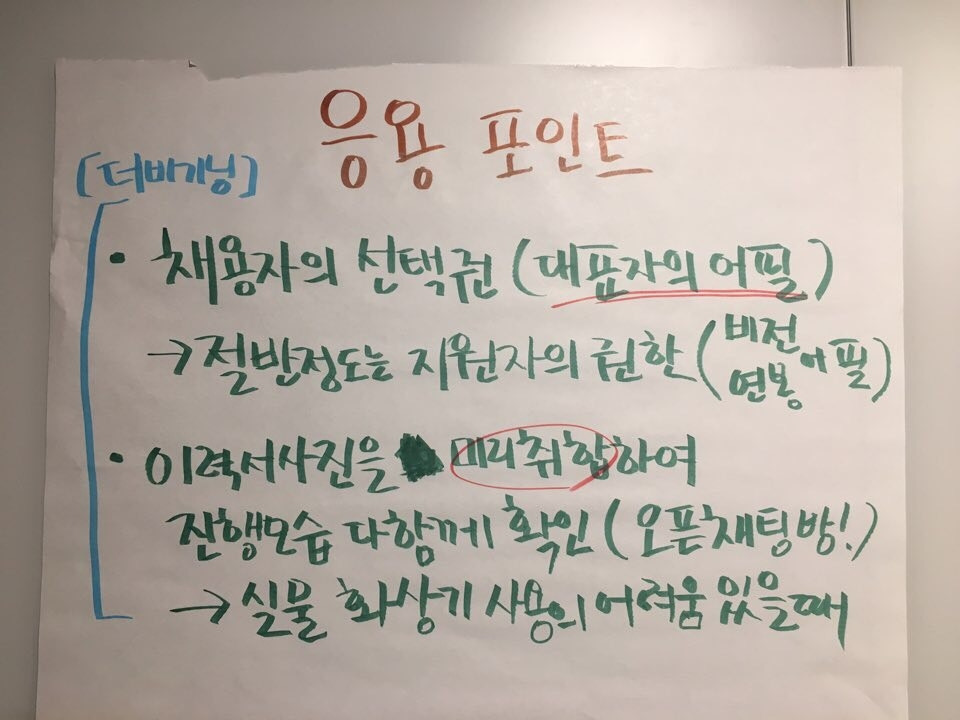 응용 포인트
[더비기닝]
· 채용자의 선택권 (대표자의 어필)
→ 절반정도는 지원자의 권한 (비전 연봉 어필)
· 이력서사진을 미리취합하여
진행모습 다함께 확인 (오픈채팅방!)
→ 실물 화상기 사용의 어려움 있을때